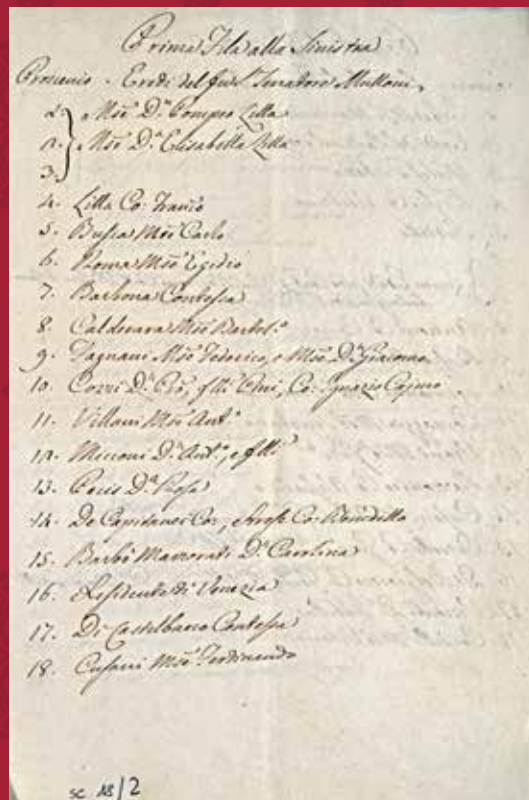 Prima Fila alla Sinistra
Proscenio - Eredi del fu Senatore Mulloni
1. Mse D. Pompeo Litta
2. Mse D.a Elisabetta Litta
3.
4. Litta Co:
5. Busca Mse Carlo
6. Roma Mse Egidio
7. Barbona Contessa
8. Calderara Mse Bartol.o
9. Fagnani Mse Federico, e Mse D. Giacomo
10. Corri D. f.lli Co: Ignazio Cajmo
11. Villani Mse Ant.o
12. D. Ant.o, e f.lli
13. Pecis D.
14. De Capitanei Co: Benedetto
15. Barbò D.a Carolina
16. Residente di Venezia
17. Di Castelbarco Contessa
18. Cusani Mse Ferdinando
sc. 18/2